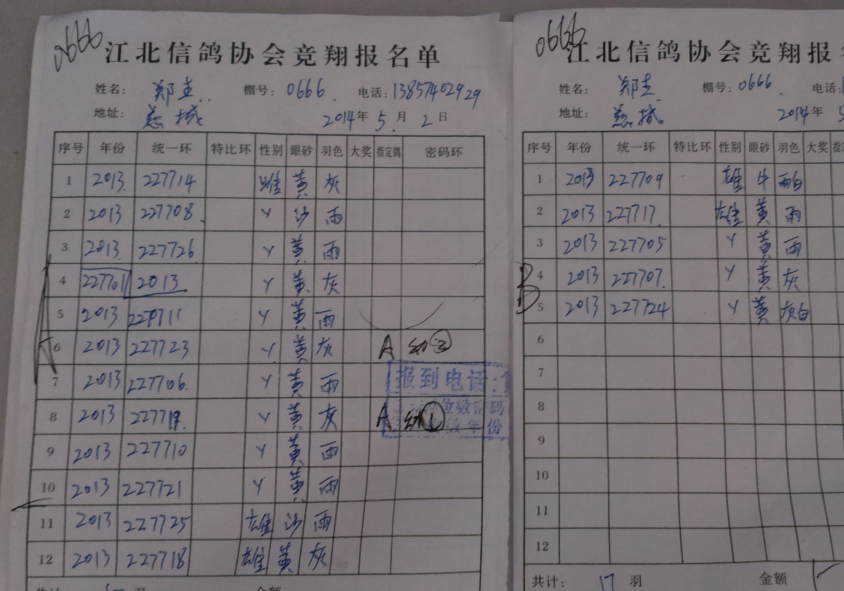 0666
江北信鸽协会竞翔报名单
姓名: 郑 棚号: 0666 电话: 13857402929
地址: 慈城 2014年5月2日
序号 年份 统一环 特比环 性别 眼砂 羽色 大奖 指定鸽 密码环
1 2013 227714 雌 黄 灰
2 2013 227708 Y 沙 雨
3 2013 227726 Y 黄 雨
4 227701 2013 Y 黄 灰
5 2013 227711 Y 黄 雨
6 2013 227723 Y 黄 灰 A 幼②
7 2013 227706 Y 黄 雨
8 2013 Y 黄 灰 A 幼①
9 2013 227710 Y 黄 雨
10 2013 227721 Y 黄 雨
11 2013 227725 雄 沙 雨
12 2013 227718 雄 黄 灰
A
报到电话:
位数密码
年份
0666
江北信鸽协会竞翔报
姓名: 郑 棚号: 0666 电话:
地址: 慈城 2014年5
序号 年份 统一环 特比环 性别 眼砂 羽色 大奖
1 2013 227709 雄 牛 雨白
2 2013 227717 雄 黄 雨
3 2013 227705 Y 黄 雨
4 2013 227707 Y 黄 灰
5 2013 227724 Y 黄 灰白
6
7
8
9
10
11
12
B
共计: 17 羽 金额